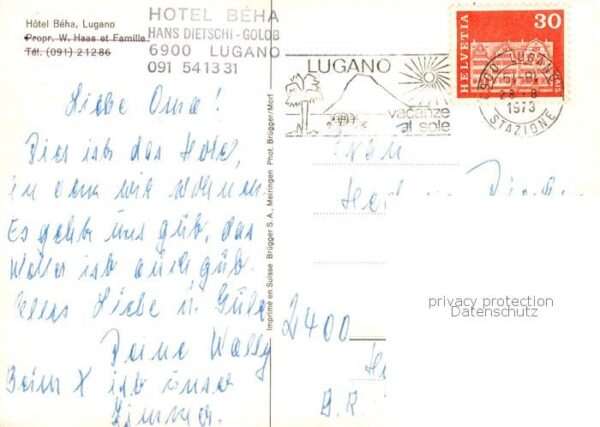 Hôtel Béha, Lugano
Propr. W. Haas et Famille
Tél. (091) 21286
HOTEL BÉHA
HANS DIETSCHI - GOLOB
6900 LUGANO
091 541331
LUGANO
vacanze
al sole
HELVETIA
30
6900 LUGANO
28.-8.
1973
STAZIONE
Liebe Oma!
Dies ist das Hotel,
in dem wir wohnen.
Es geht uns gut, das
Wetter ist auch gut.
Alles Liebe u. Gute
Deine Wally
Beim X ist unser
Zimmer.
Imprimé en Suisse Brügger S.A., Meiringen Phot. Brügger/Morf
2400
B.R.
privacy protection
Datenschutz